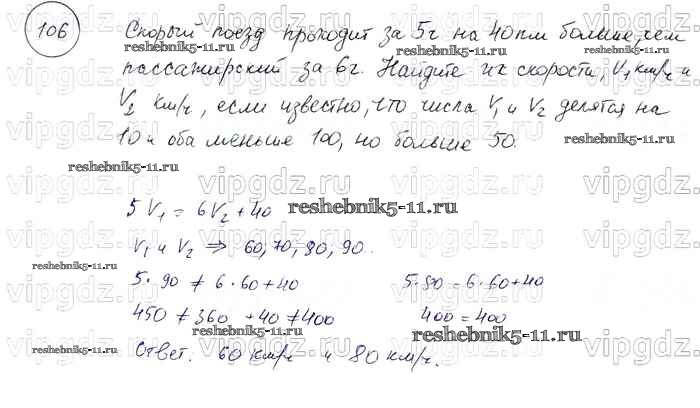 106
Скорый поезд проходит за 5г на 40 км больше, чем
пассажирский за 6г. Найдите их скорости, V₁ км/ч и
V₂ км/ч, если известно, что числа V₁ и V₂ делятся на
10 и оба меньше 100, но больше 50.
5V₁ = 6V₂ + 40
V₁ и V₂ ⇒ 60, 70, 80, 90.
5·90 ≠ 6·60+40 5·80 = 6·60+40
450 ≠ 360 +40 ≠ 400 400 = 400
Ответ. 60 км/ч и 80 км/ч.
reshebnik5-11.ru
vipgdz.ru